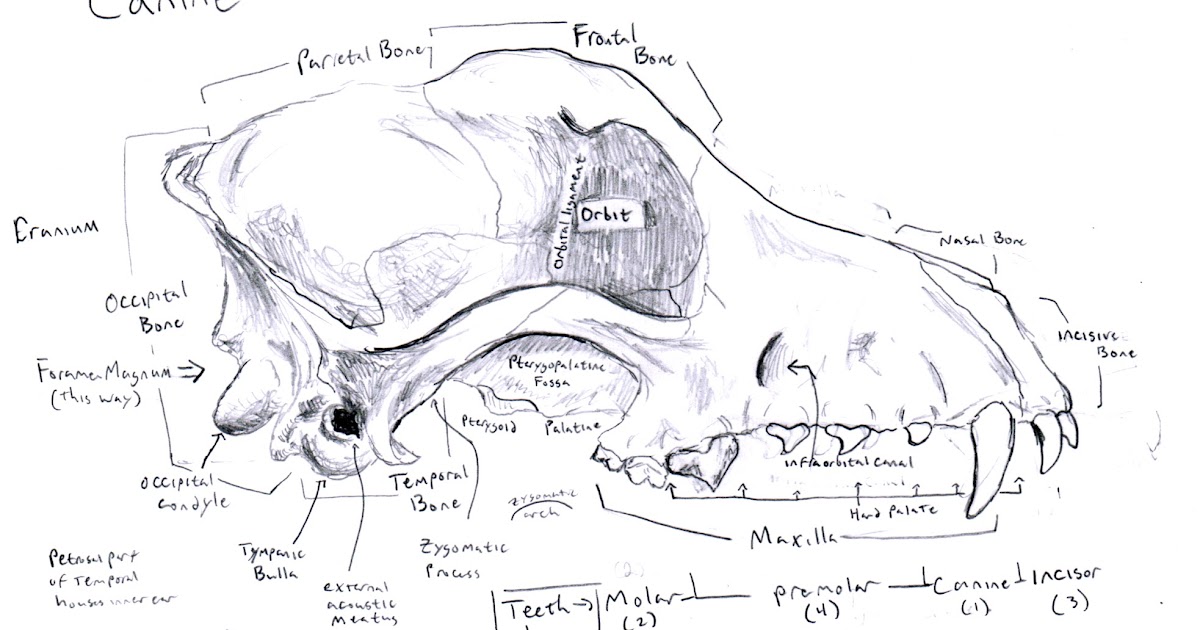 Canine
Parietal Bone
Frontal
Bone
Cranium
Orbital ligament
Orbit
Nasal Bone
Occipital
Bone
Incisive
Bone
Foramen Magnum
(this way)
Pterygopalatine
Fossa
Pterygoid
Palatine
infraorbital canal
Occipital
Condyle
Temporal
Bone
Zygomatic
arch
Hard Palate
Maxilla
Petrosal part
of Temporal
houses inner ear
Tympanic
Bulla
external
acoustic
Meatus
Zygomatic
Process
(2)
Teeth → Molar premolar Canine Incisor
(2) (4) (1) (3)